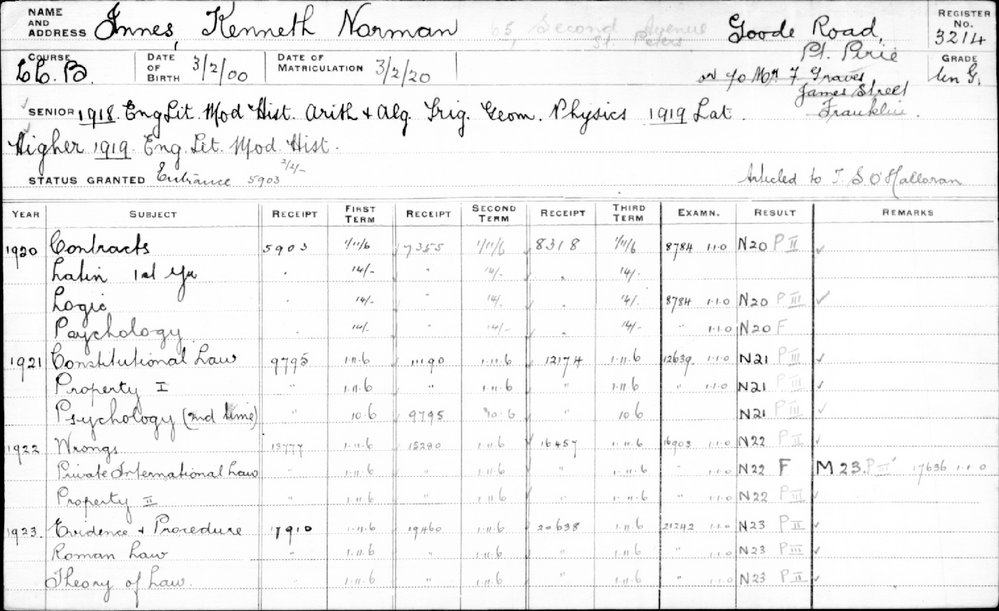 NAME AND ADDRESS Innes, Kenneth Norman 65, Second Avenue Goode Road, REGISTER No. 3214
St. Peters Pt. Pirie
COURSE LL.B. DATE OF BIRTH 3/2/00 DATE OF MATRICULATION 3/2/20 or c/o Mr F Graves GRADE Un G.
James Street
SENIOR 1918 Eng Lit. Mod Hist. Arith & Alg. Trig. Geom. Physics 1919 Lat. Franklin
Higher 1919 Eng. Lit. Mod. Hist.
STATUS GRANTED Entrance 5903 2/2/- Articled to T. S. O'Halloran
YEAR SUBJECT RECEIPT FIRST TERM RECEIPT SECOND TERM RECEIPT THIRD TERM EXAMN. RESULT REMARKS
1920 Contracts 5903 1/11/6 7355 1/11/6 8318 1/11/6 8784 1.1.0 N20 P II ✓
Latin 1st Yr " 14/- " 14/- " 14/-
Logic " 14/- " 14/- " 14/- 8784 1.1.0 N20 P III ✓
Psychology " 14/- " 14/- " 14/- " 1.1.0 N20 F
1921 Constitutional Law 9795 1.11.6 11190 1.11.6 12174 1.11.6 12639 1.1.0 N21 P III ✓
Property I " 1.11.6 " 1.11.6 " 1.11.6 " 1.1.0 N21 P II ✓
Psychology (2nd time) " 10.6 9795 10.6 " 10.6 N21 P III ✓
1922 Wrongs 13777 1.11.6 15280 1.11.6 16457 1.11.6 16903 1.1.0 N22 P II ✓
Private International Law " 1.11.6 " 1.11.6 " 1.11.6 " 1.1.0 N22 F M 23. P III 17636 1.1.0
Property II " 1.11.6 " 1.11.6 " 1.11.6 " 1.1.0 N22 P III ✓
1923 Evidence & Procedure 17910 1.11.6 19460 1.11.6 20638 1.11.6 21242 1.1.0 N23 P II ✓
Roman Law " 1.11.6 " 1.11.6 " 1.11.6 " 1.1.0 N23 P III ✓
Theory of Law " 1.11.6 " 1.11.6 " 1.11.6 " 1.1.0 N23 P II ✓